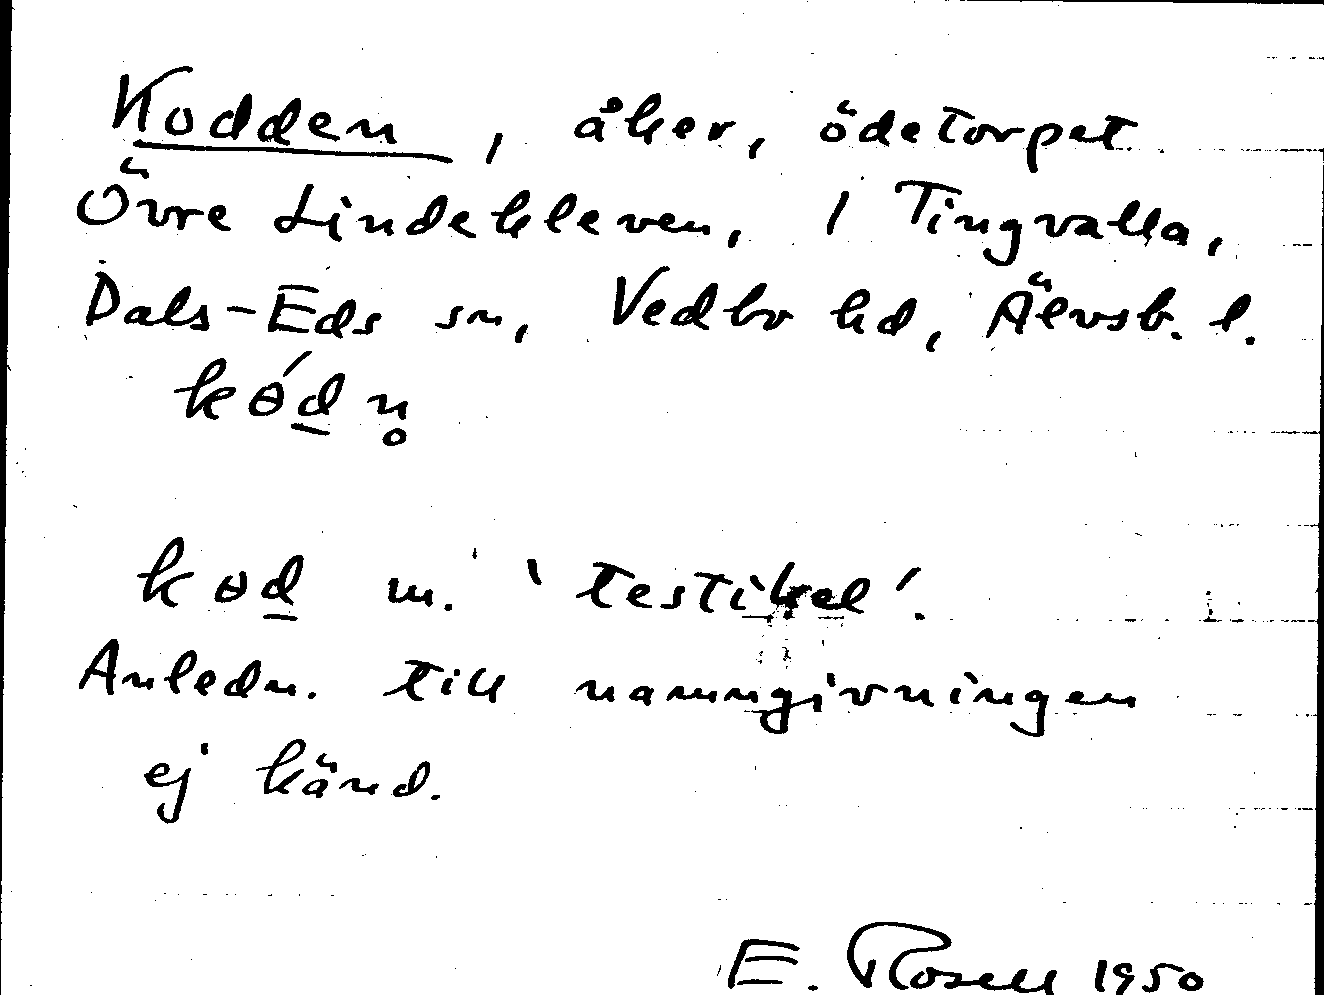 Kodden, åker, ödetorpet
Övre Lindekleven, 1 Tingvalla,
Dals-Eds sn, Vedbo hd, Älvsb. l.
kɵ́d̲n̥
kɵd̲ m. 'testikel'.
Anledn. till namngivningen
ej känd.
E. Rosell 1950